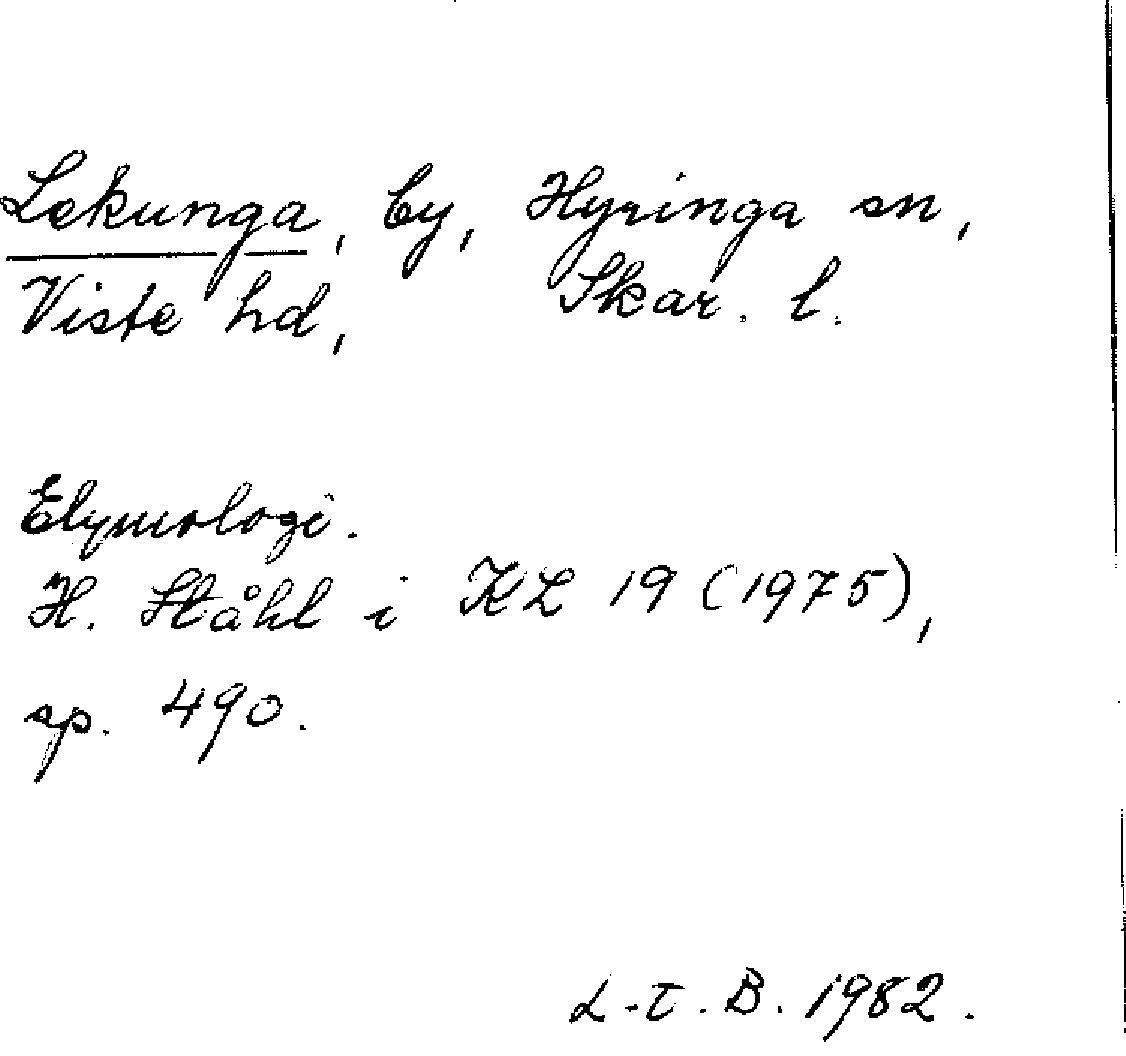 Lekunga, by, Hyringa sn,
Viste hd, Skar. l.
Etymologi.
H. Ståhl i KL 19 (1975),
sp. 490.
L-E. B. 1982.